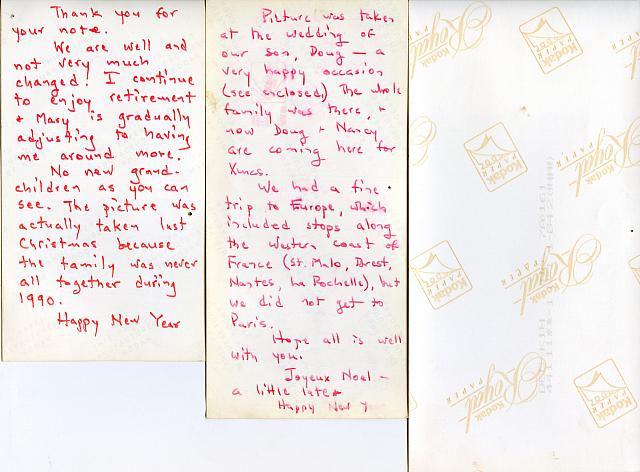 Thank you for
your note.
We are well and
not very much
changed! I continue
to enjoy retirement
+ Mary is gradually
adjusting to having
me around more.
No new grand-
children as you can
see. The picture was
actually taken last
Christmas because
the family was never
all together during
1990.
Happy New Year
Picture was taken
at the wedding of
our son, Doug — a
very happy occasion
(see enclosed) The whole
family was there, +
now Doug + Nancy
are coming here for
Xmas.
We had a fine
trip to Europe, which
included stops along
the Western coast of
France (St. Malo, Brest,
Nantes, La Rochelle), but
we did not get to
Paris.
Hope all is well
with you.
Joyeux Noel —
a little late
Happy New Y
Kodak
Royal
PAPER
Kodak
PAPER
Kodak
Royal
PAPER
Kodak
PAPER
Kodak
Royal
PAPER
Kodak
PAPER
Kodak
Royal
PAPER
Kodak
PAPER